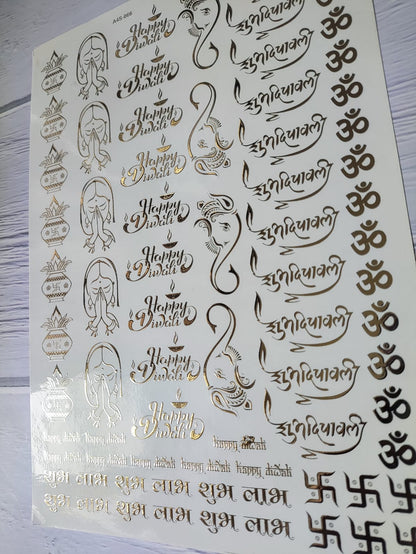 A4S-066
Happy Diwali
Happy Diwali
Happy Diwali
Happy Diwali
Happy Diwali
Happy Diwali
Happy Diwali
Happy Diwali
Happy Diwali
शुभदिपावली
शुभदिपावली
शुभदिपावली
शुभदिपावली
शुभदिपावली
शुभदिपावली
शुभदिपावली
शुभदिपावली
शुभदिपावली
शुभदिपावली
ॐ
ॐ
ॐ
ॐ
ॐ
ॐ
ॐ
ॐ
ॐ
ॐ
ॐ
ॐ
ॐ
happy diwali happy diwali happy diwali
happy diwali happy diwali happy diwali happy diwali
शुभ लाभ शुभ लाभ शुभ लाभ
शुभ लाभ शुभ लाभ शुभ लाभ